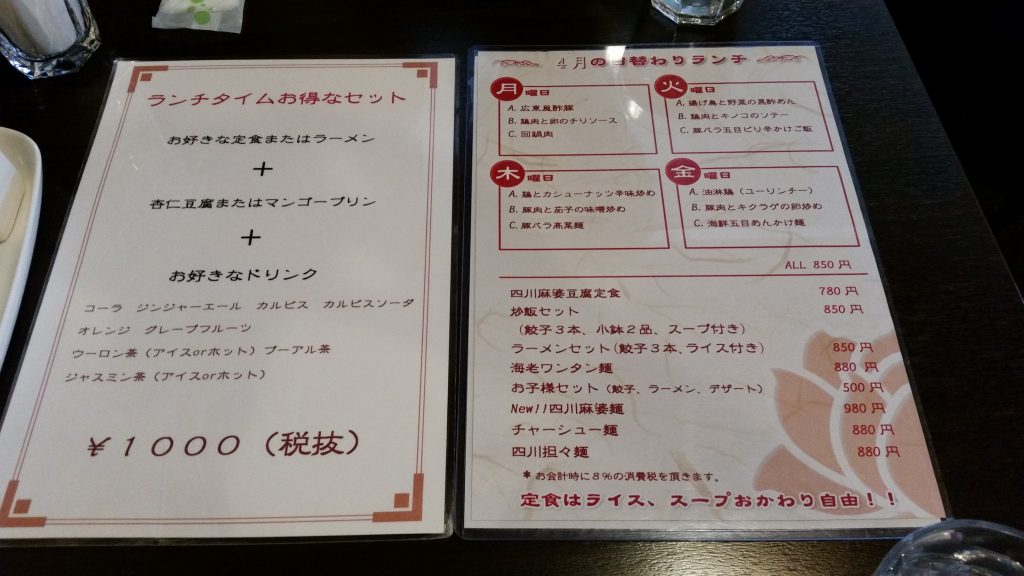 ランチタイムお得なセット
お好きな定食またはラーメン
＋
杏仁豆腐またはマンゴープリン
＋
お好きなドリンク
コーラ ジンジャーエール カルピス カルピスソーダ
オレンジ グレープフルーツ
ウーロン茶（アイスorホット） プーアル茶
ジャスミン茶（アイスorホット）
￥１０００（税抜）
4月の日替わりランチ
月曜日
A. 広東風酢豚
B. 鶏肉と卵のチリソース
C. 回鍋肉
火曜日
A. 揚げ鳥と野菜の黒酢あん
B. 鶏肉とキノコのソテー
C. 豚バラ五目ピリ辛かけご飯
木曜日
A. 鶏とカシューナッツ辛味炒め
B. 豚肉と茄子の味噌炒め
C. 豚バラ高菜麺
金曜日
A. 油淋鶏（ユーリンチー）
B. 豚肉とキクラゲの卵炒め
C. 海鮮五目あんかけ麺
ALL 850円
四川麻婆豆腐定食 780円
炒飯セット 850円
（餃子３本、小鉢２品、スープ付き）
ラーメンセット（餃子３本、ライス付き） 850円
海老ワンタン麺 880円
お子様セット（餃子、ラーメン、デザート） 500円
New!!四川麻婆麺 980円
チャーシュー麺 880円
四川担々麺 880円
＊お会計時に８％の消費税を頂きます。
定食はライス、スープおかわり自由！！